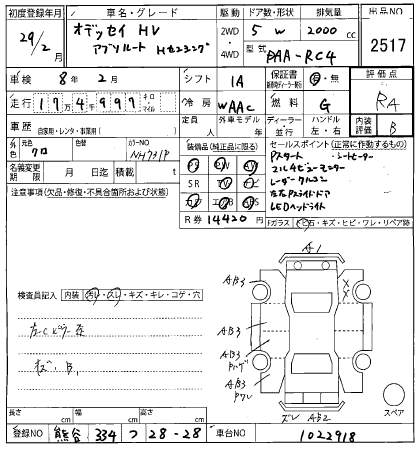 初度登録年月 車名・グレード 駆動 ドア数・形状 排気量 出品NO
29/2 オデッセイ HV 2WD 4WD 5 W 2000 cc 2517
アブソルート Hセンシング 型式 DAA-RC4
車検 8年 2月 シフト IA 保証書 有・無 評価点
走行 17万4千997 キロ・マイル 冷房 WAAC 燃料 G RA
車歴 自家用・レンタ・事業用( ) 定員 人 外車モデル 年 ディーラー・並行 ハンドル 左・右 内装評価 B
色 元色 クロ 色替 カラーNO NH731P 装備品(純正品に限る) セールスポイント(正常に作動するもの)
名義変更期限 月 日迄 積替 月
SR
注意事項(欠品・修復・不具合箇所および状態) Pスタート シートヒーター
マルチビューモニター
レーダークルコン
左右Pスライドドア
LEDヘッドライト
R券 14420 円 Fガラス 石・キズ・ヒビ・ワレ・リペア跡
A1
AB3
AB3
AB3
AB3
X
X
ズレ AB2
検査員記入 内装 汚レ・スレ・キズ・キレ・コゲ・穴
スペア
長さ cm 幅 cm 高さ cm
登録NO 熊谷 334 つ 28-28 車台NO 1022918